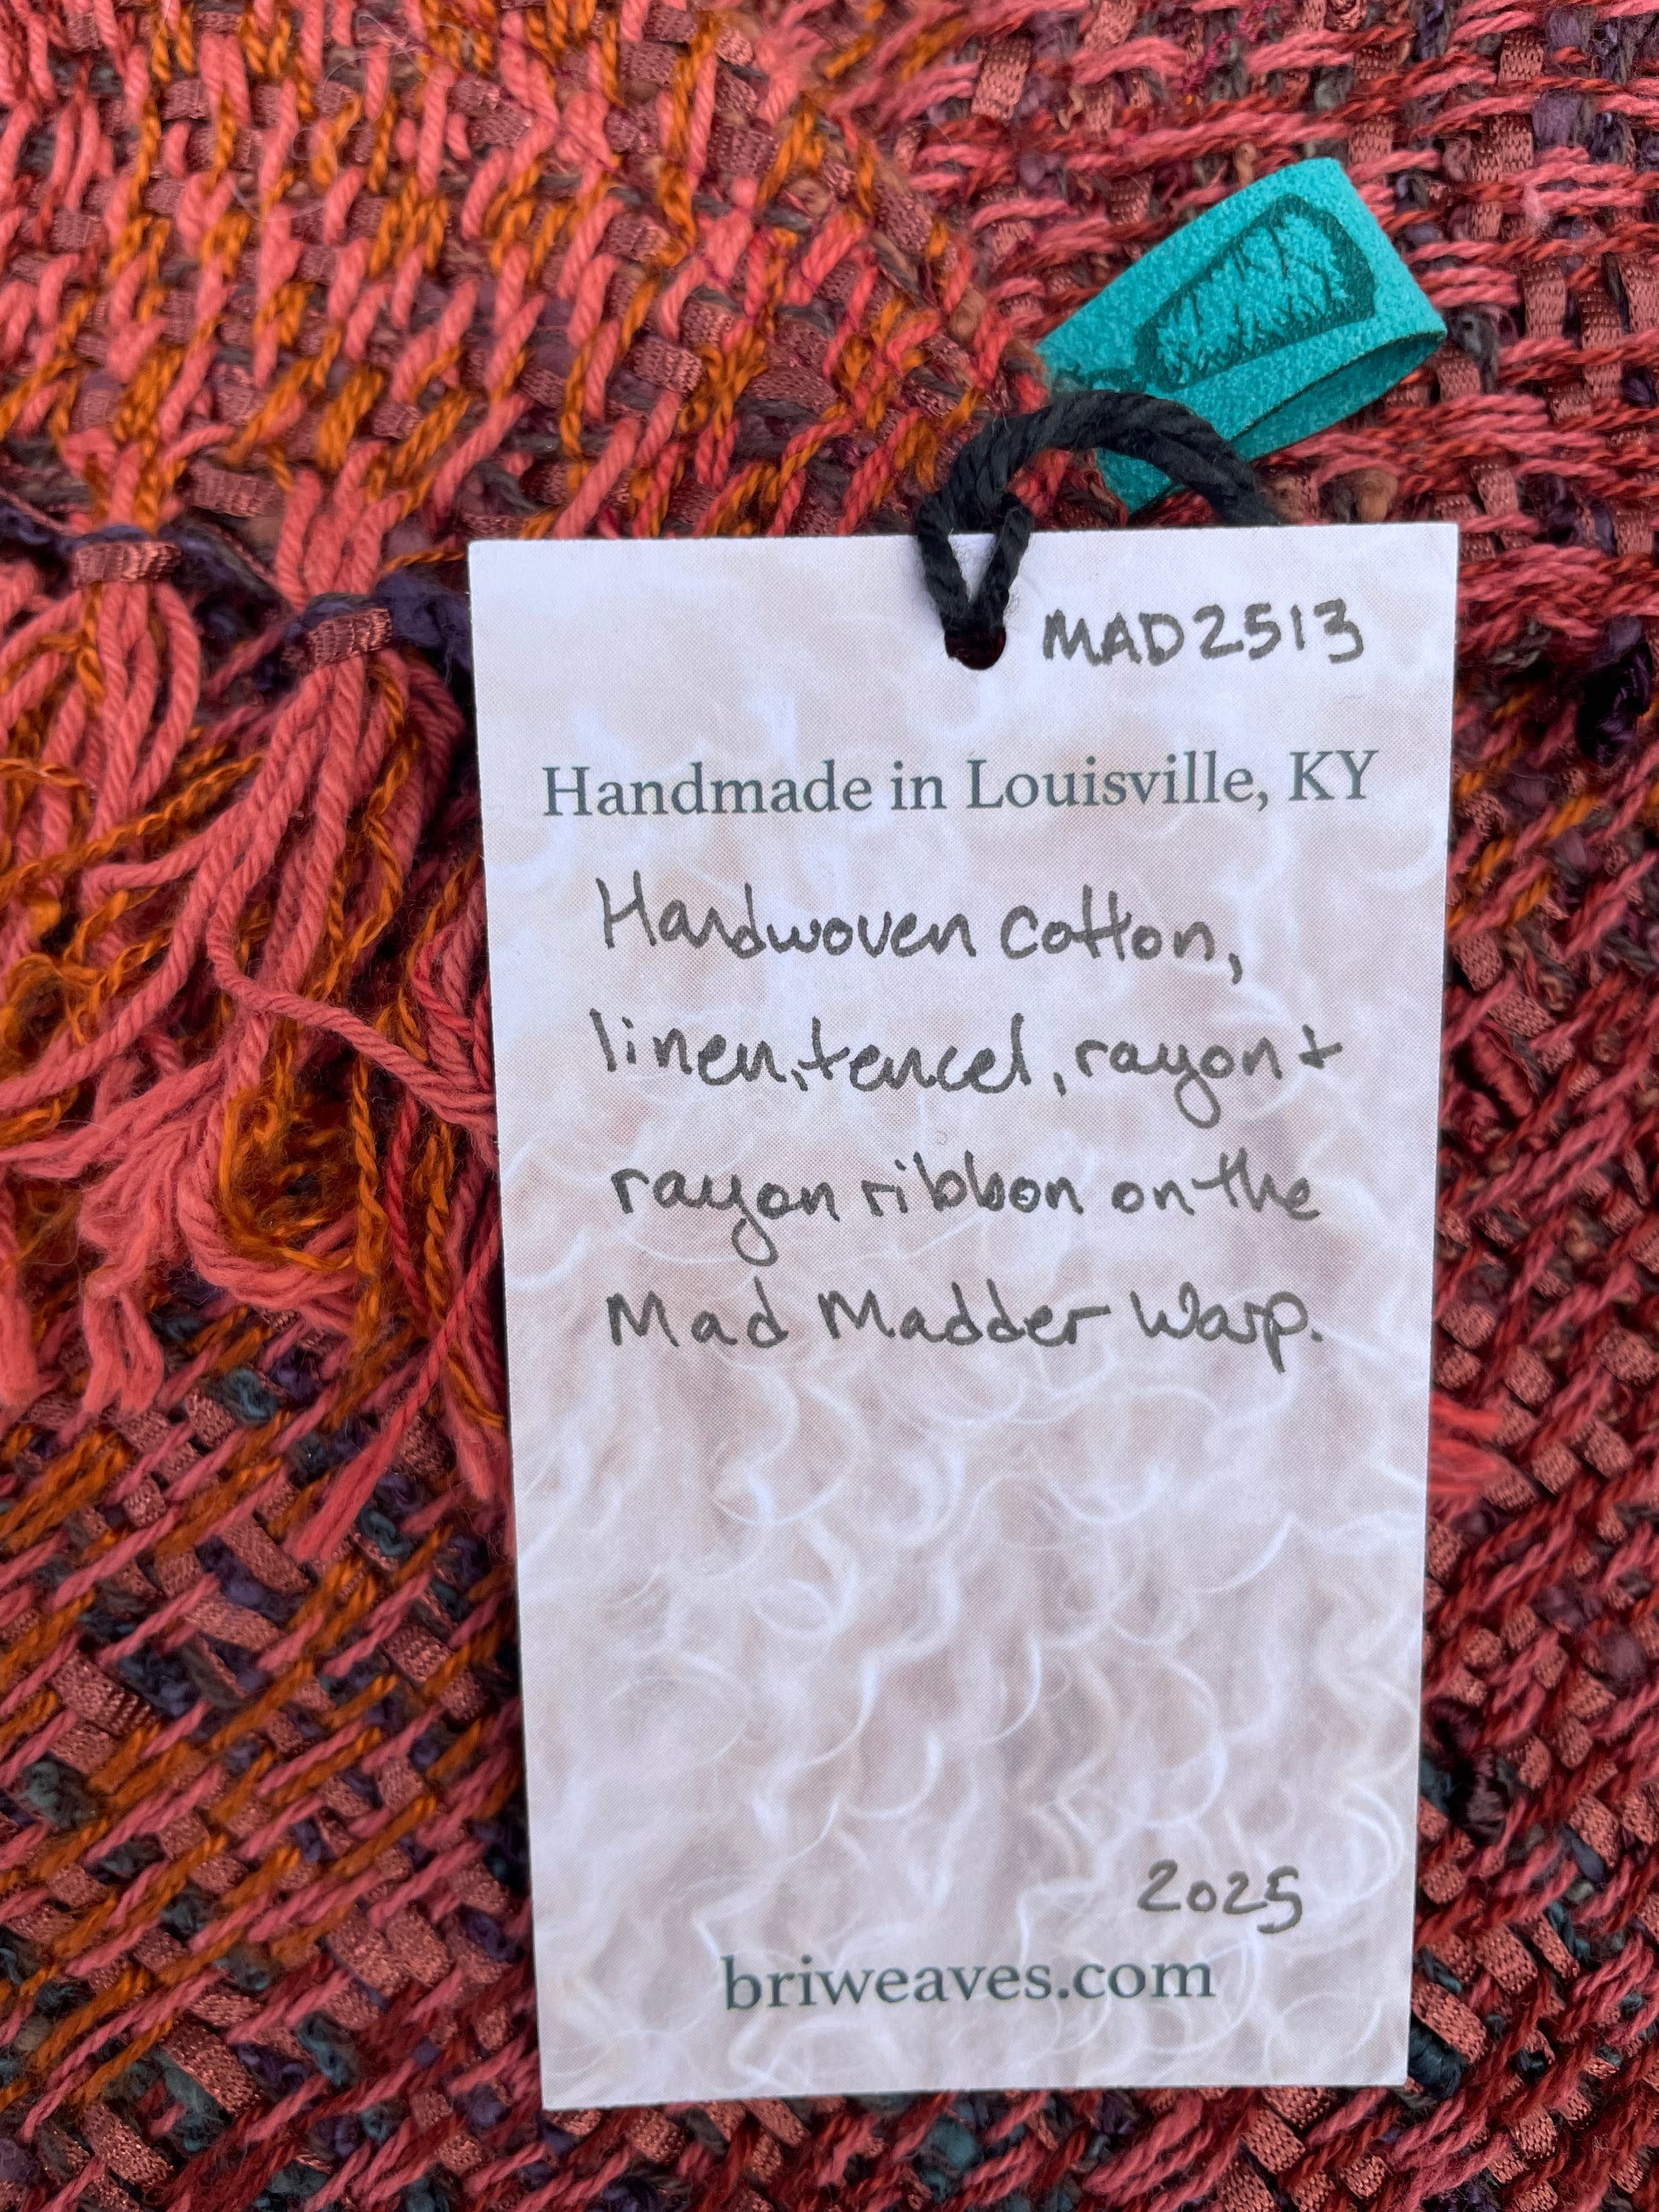 MAD2513
Handmade in Louisville, KY
Handwoven cotton,
linen, tencel, rayon +
rayon ribbon on the
Mad Madder Warp.
2025
briweaves.com